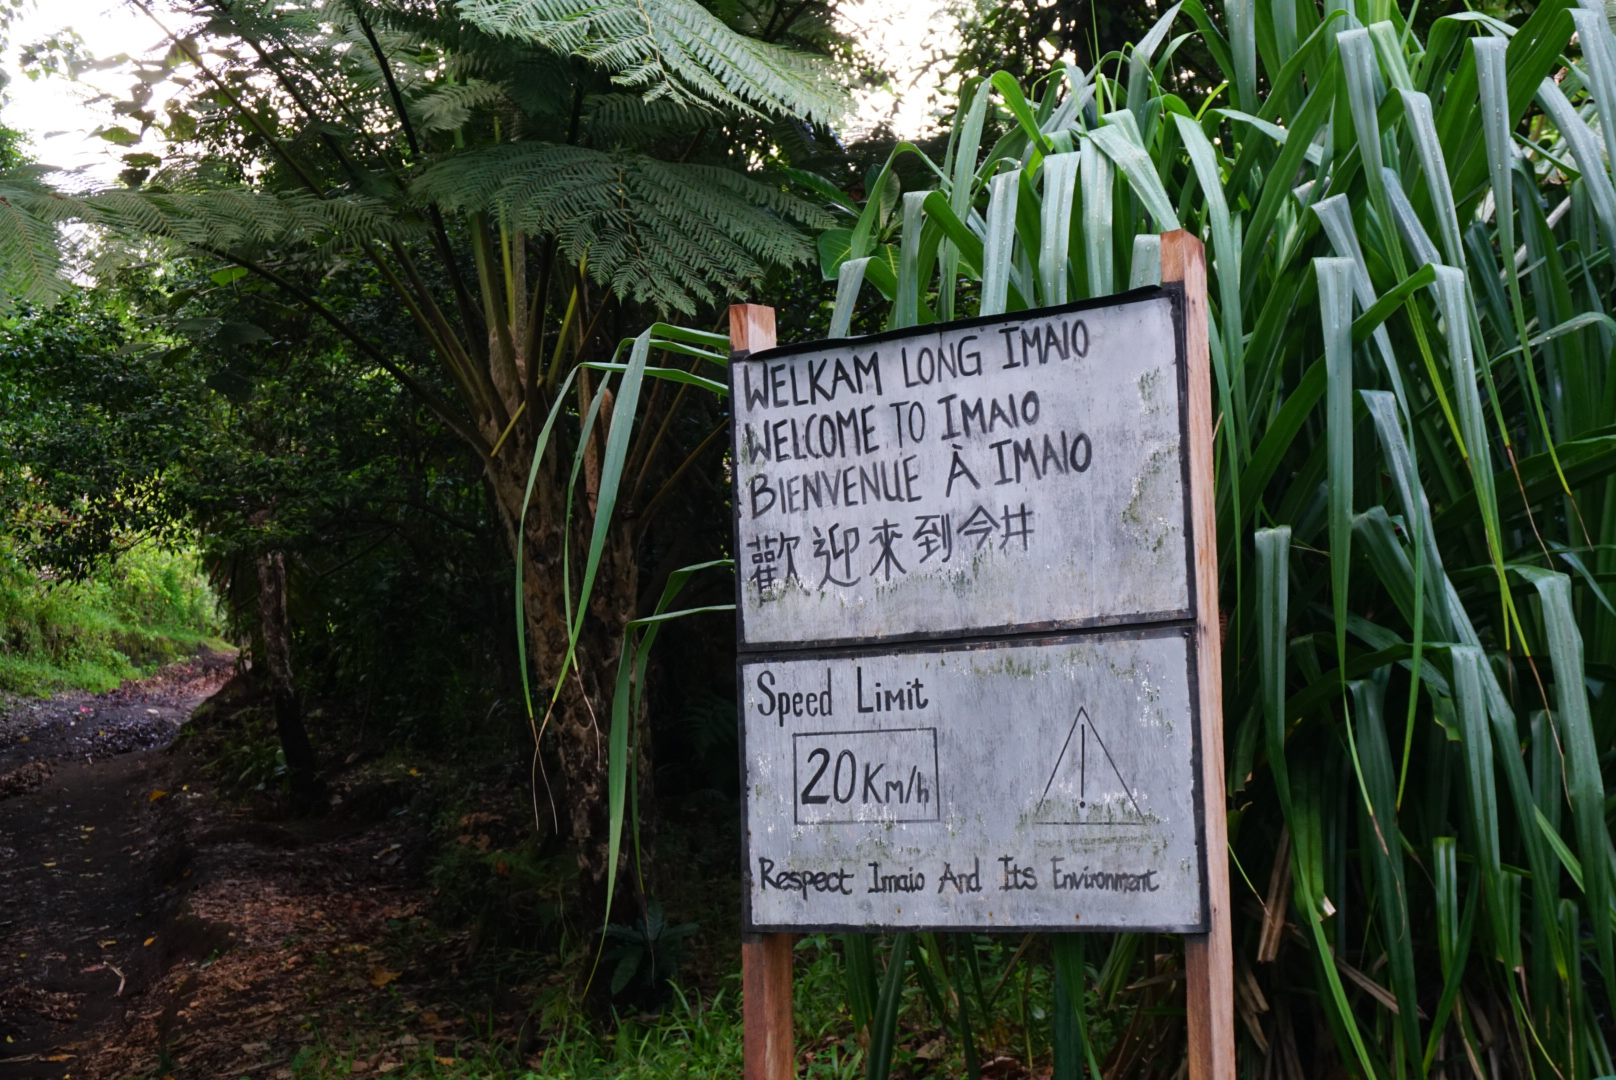 WELKAM LONG IMAIO
WELCOME TO IMAIO
BIENVENUE À IMAIO
歡迎來到今井
Speed Limit
20 Km/h
Respect Imaio And Its Environment